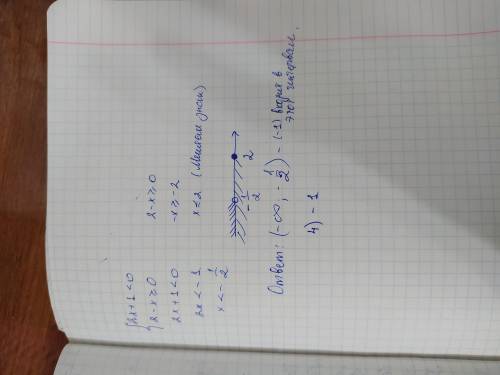 {2x+1<0
2-x≥0
2x+1<0
2x<-1
x<-1/2
2-x≥0
-x≥-2
x≤2 (Меняем знак)
-1/2 2
Ответ: (-∞, -1/2) - (-1) входит в
этот интервал.
4) - 1